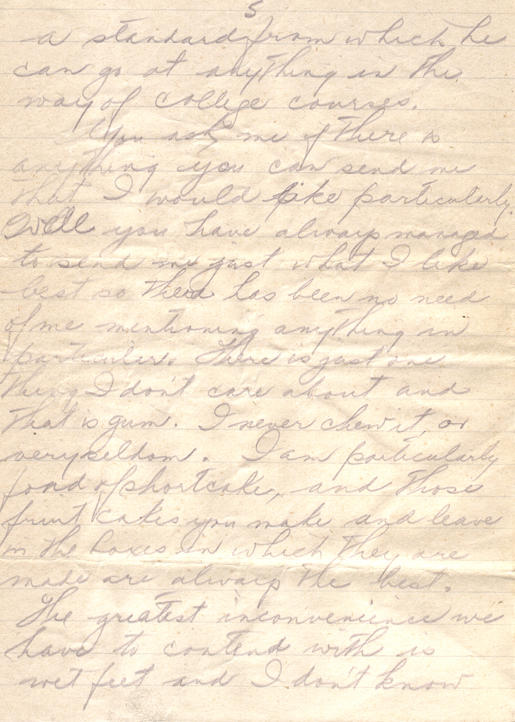 5
a standard from which he
can go at anything in the
way of college courses.
You ask me if there is
anything you can send me
that I would like particularly.
Well you have always managed
to send me just what I like
best so there has been no need
of me mentioning anything in
particular. There is just one
thing I don't care about and
that is gum. I never chew it, or
very seldom. I am particularly
fond of shortcake, and those
fruit cakes you make and leave
in the boxes in which they are
made are always the best.
The greatest inconvenience we
have to contend with is
wet feet and I don't know